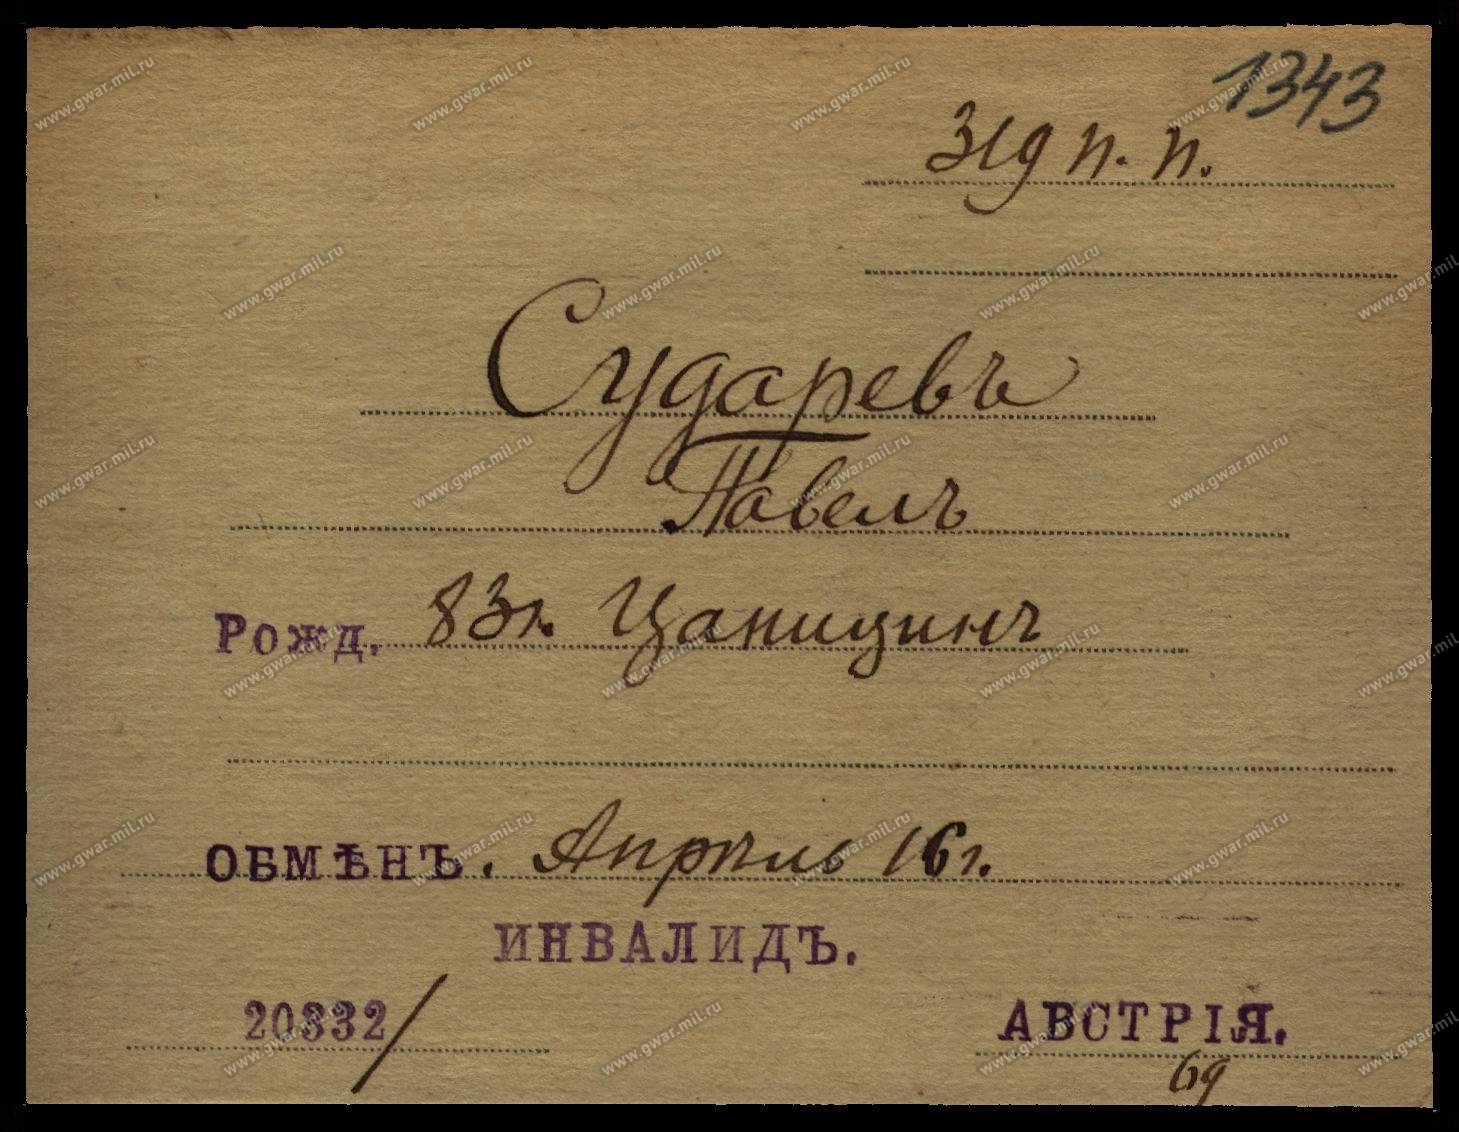 1343
319 п. п.
Сударевъ
Павелъ
Рожд. 83г. Цаницинъ
ОБМѢНЪ. Апрѣль 16 г.
ИНВАЛИДЪ.
20332/
АВСТРІЯ.
69
www.gwar.mil.ru